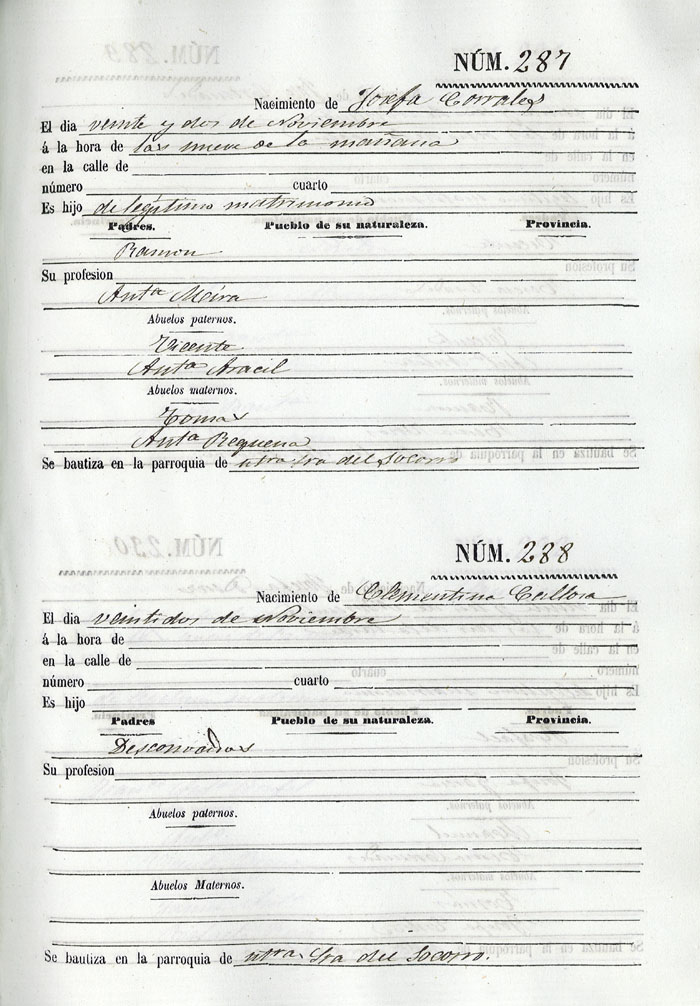 NÚM. 287
Nacimiento de Josefa Corrales
El dia veinte y dos de Noviembre
á la hora de las nueve de la mañana
en la calle de
número cuarto
Es hijo de legítimo matrimonio
Padres. Pueblo de su naturaleza. Provincia.
Ramon
Su profesion
Anta Moira
Abuelos paternos.
Vicente
Anta Aracil
Abuelos maternos.
Tomas
Anta Requena
Se bautiza en la parroquia de ntra Sra del Socorro
NÚM. 288
Nacimiento de Clementina Callosa
El dia veintidos de Noviembre
á la hora de
en la calle de
número cuarto
Es hijo
Padres Pueblo de su naturaleza. Provincia.
Desconocidos
Su profesion
Abuelos paternos.
Abuelos Maternos.
Se bautiza en la parroquia de ntra Sra del Socorro.